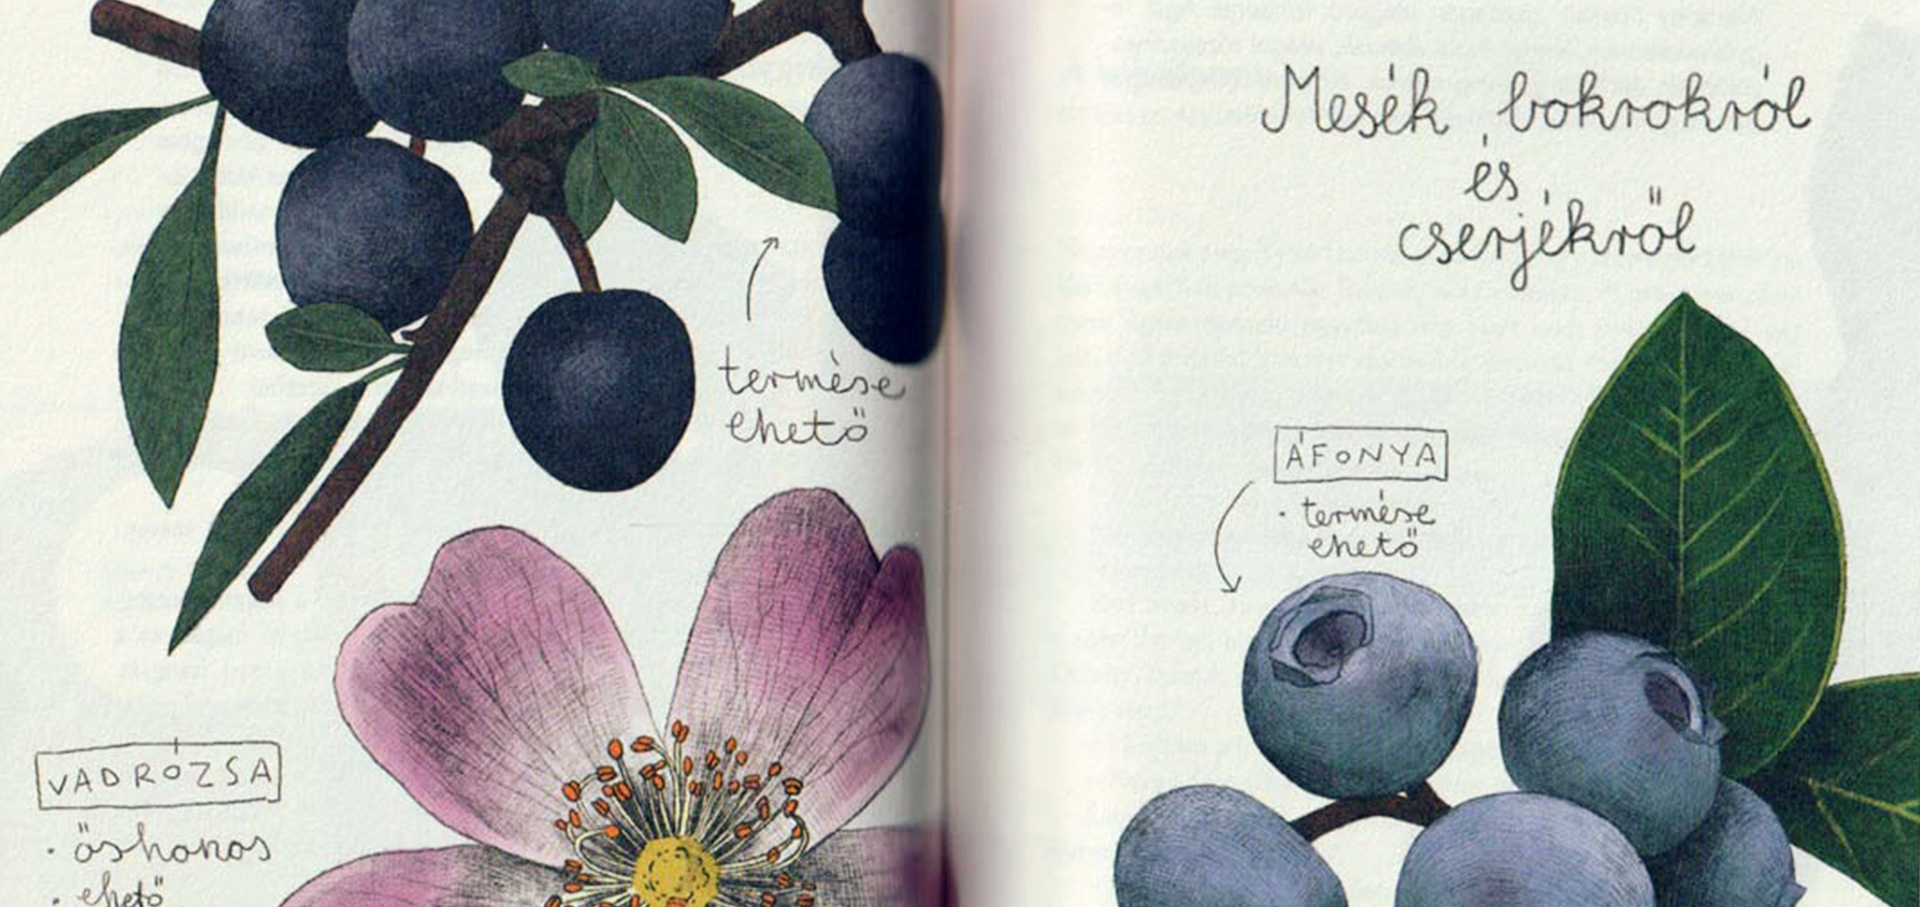 termése
ehető
VADRÓZSA
· őshonos
· ehető
Mesék bokrokról
és
cserjékről
ÁFONYA
· termése
ehető